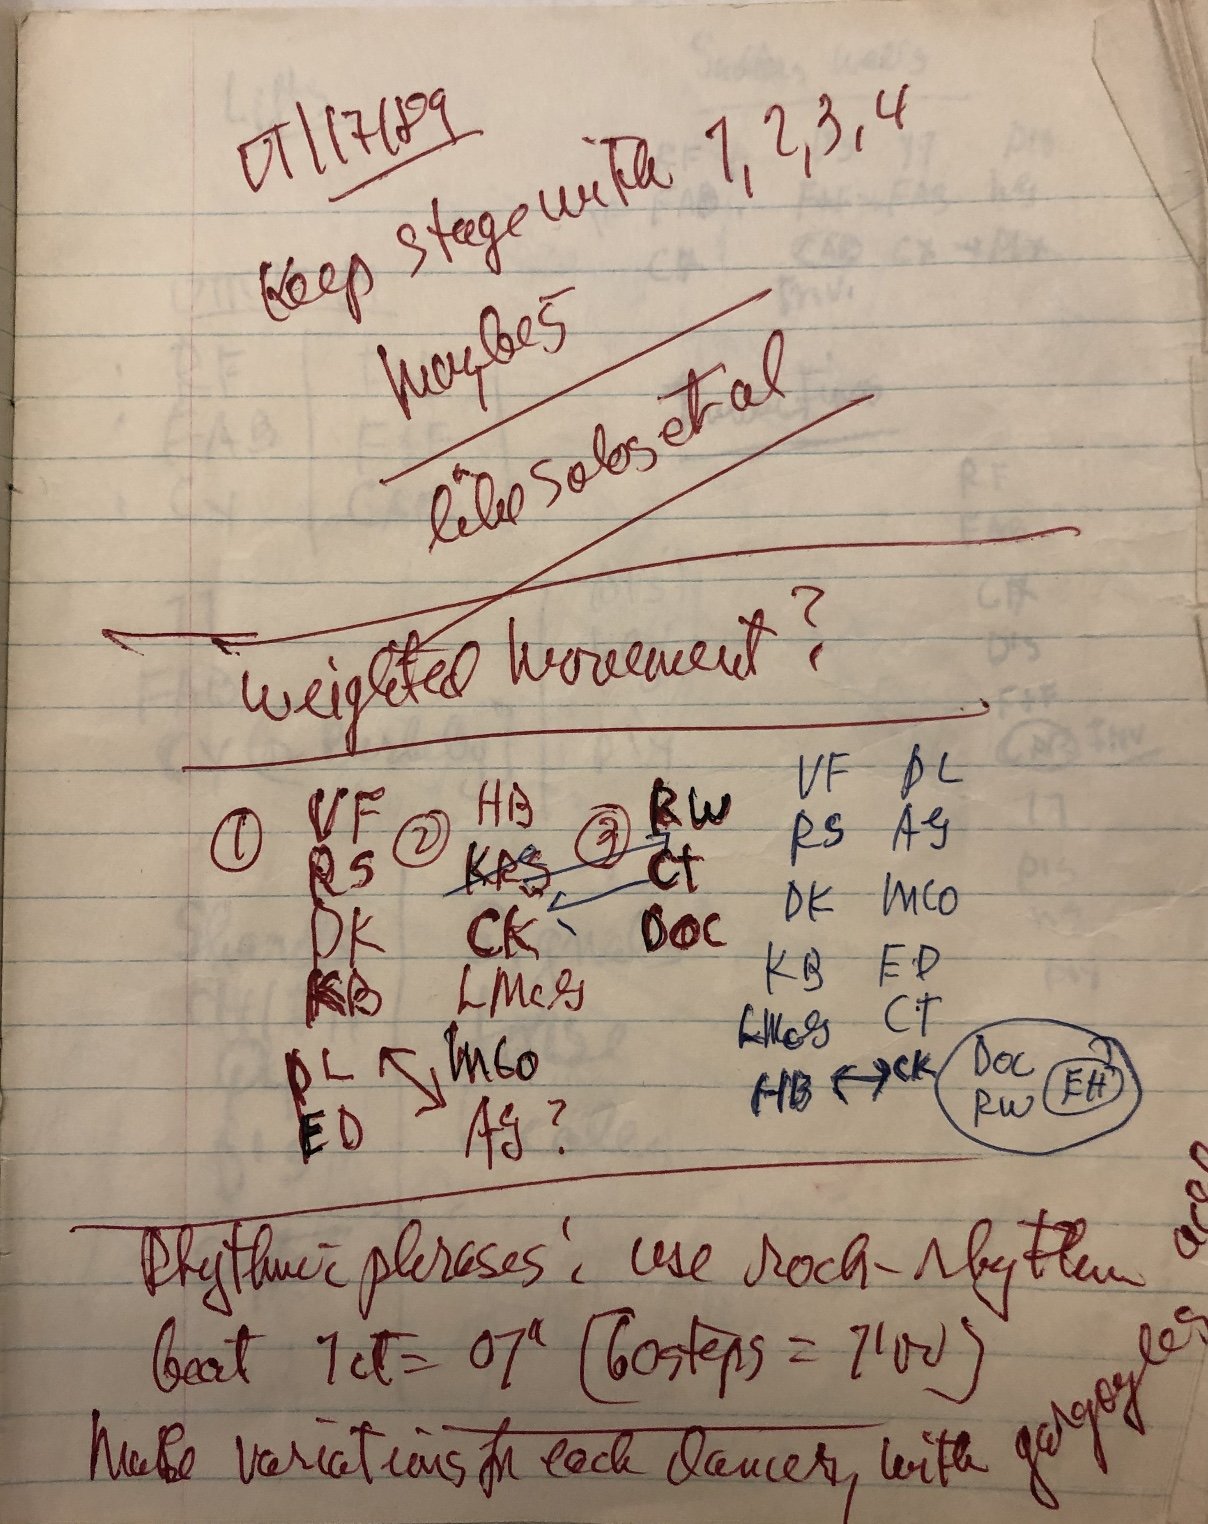 01/17/89
Keep stage with 1, 2, 3, 4
maybe 5
like solos et al
Weighted movement?
① VF ② HB ③ RW
RS KRS CT
DK CK DOC
KB LMcG
DL MCo
ED AG?
VF DL
RS AG
DK MCO
KB ED
LMcG CT
HB ↔ CK DOC
RW EH?
Rhythmic phrases: use rock-rhythm
beat 1ct = 01" (60 steps = 1'00)
Make variations for each dancer, with gargoyles